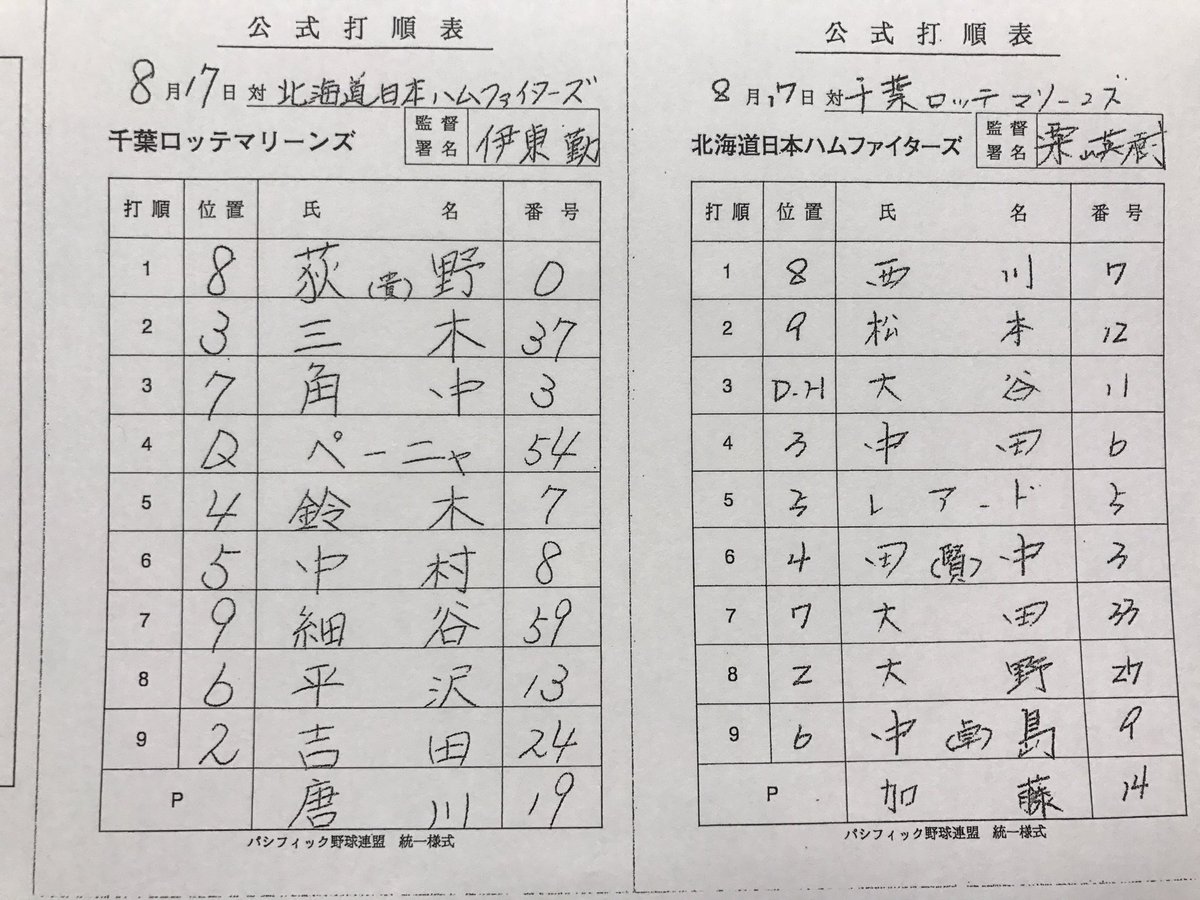 公式打順表
8月17日 対 北海道日本ハムファイターズ
千葉ロッテマリーンズ 監督署名 伊東勤
打順 位置 氏名 番号
1 8 荻(貴)野 0
2 3 三木 37
3 7 角中 3
4 D ペーニャ 54
5 4 鈴木 7
6 5 中村 8
7 9 細谷 59
8 6 平沢 13
9 2 吉田 24
P 唐川 19
パシフィック野球連盟 統一様式
公式打順表
8月17日 対 千葉ロッテマリーンズ
北海道日本ハムファイターズ 監督署名 栗山英樹
打順 位置 氏名 番号
1 8 西川 7
2 9 松本 12
3 D.H 大谷 11
4 3 中田 6
5 5 レアード 5
6 4 田(賢)中 3
7 7 大田 33
8 2 大野 27
9 6 中(卓)島 9
P 加藤 14
パシフィック野球連盟 統一様式